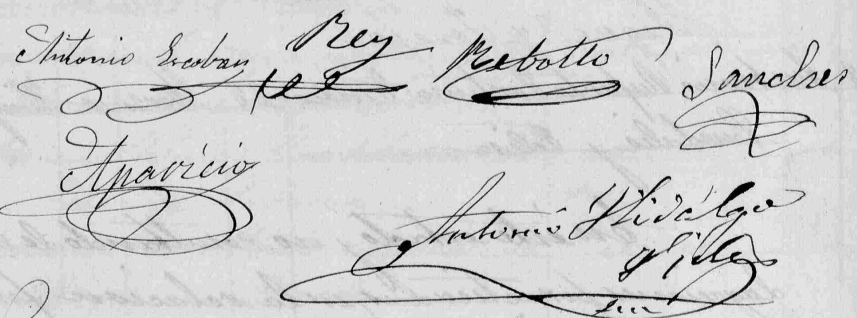 Antonio Escobar Rey Rebollo Sanches
Aparicio
Antonio Hidalgo